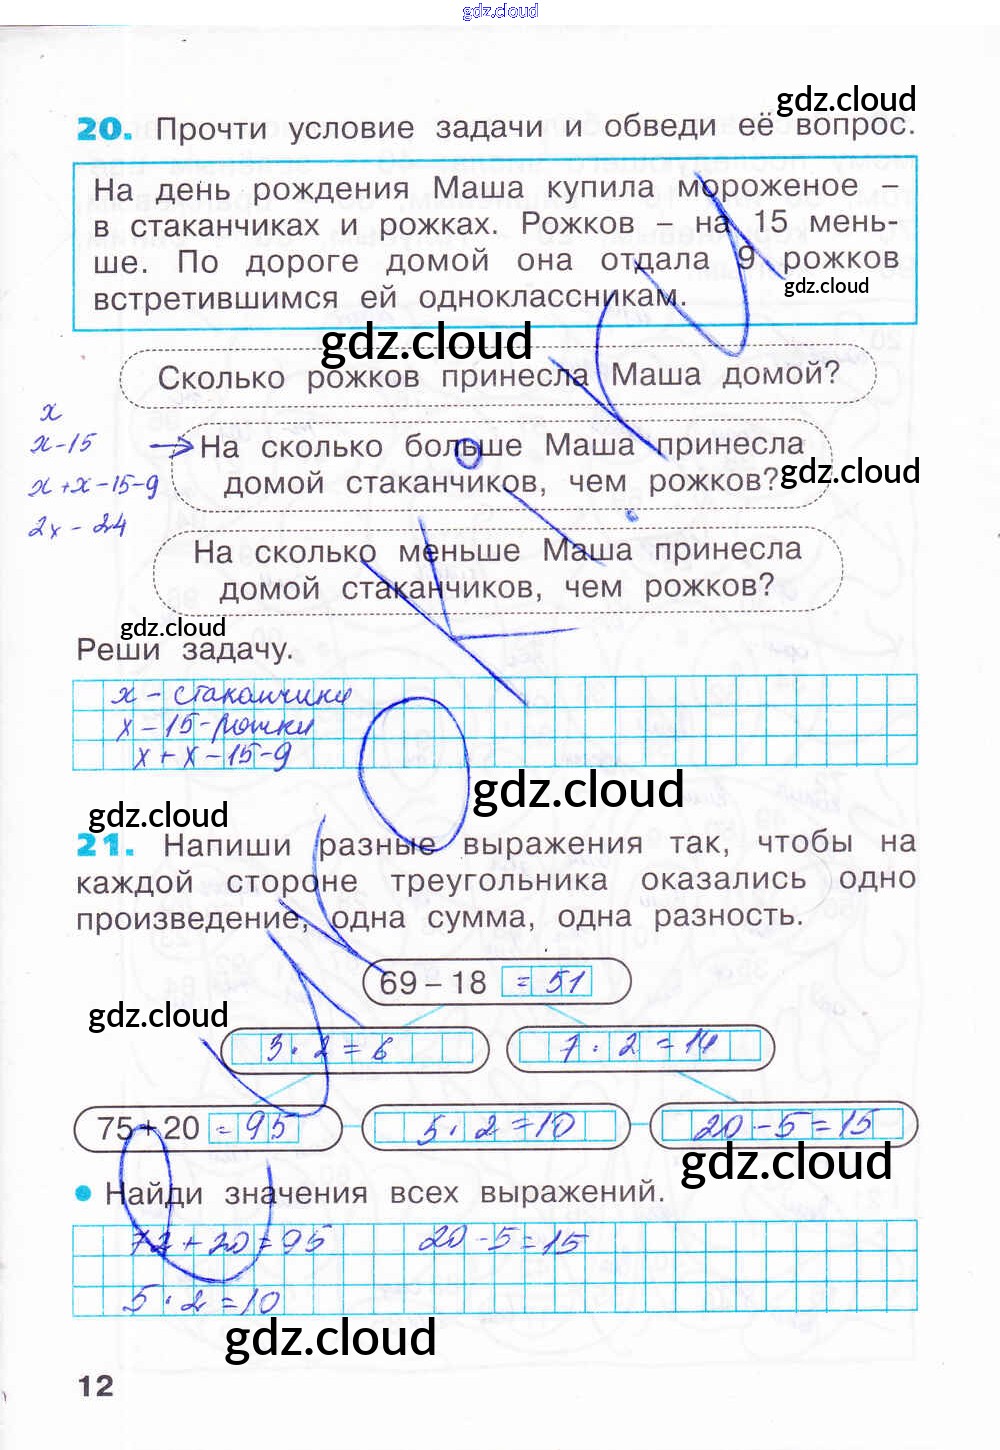 gdz.cloud
gdz.cloud
20. Прочти условие задачи и обведи её вопрос.
На день рождения Маша купила мороженое –
в стаканчиках и рожках. Рожков – на 15 мень-
ше. По дороге домой она отдала 9 рожков
встретившимся ей одноклассникам.
gdz.cloud
gdz.cloud
Сколько рожков принесла Маша домой?
x
x-15
x+x-15-9
2x-24
На сколько больше Маша принесла
домой стаканчиков, чем рожков?
gdz.cloud
На сколько меньше Маша принесла
домой стаканчиков, чем рожков?
gdz.cloud
Реши задачу.
x - стаканчики
x - 15 - рожки
x + x - 15 - 9
gdz.cloud
gdz.cloud
21. Напиши разные выражения так, чтобы на
каждой стороне треугольника оказались одно
произведение, одна сумма, одна разность.
69 – 18 = 51
gdz.cloud
3 · 2 = 6
7 · 2 = 14
75 + 20 = 95
5 · 2 = 10
20 - 5 = 15
gdz.cloud
• Найди значения всех выражений.
20 - 5 = 15
5 · 2 = 10
gdz.cloud
12